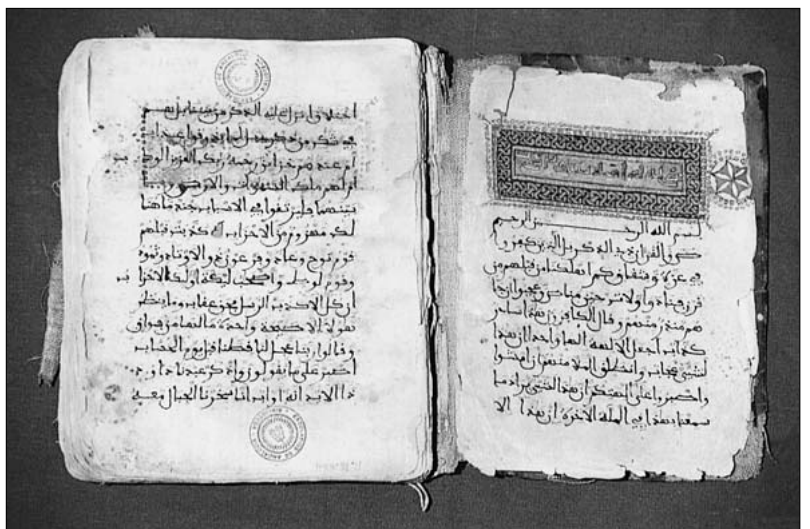 بسم الله الرحمن الرحيم
ص والقران ذي الذكر بل الذين كفروا
في عزة وشقاق كم اهلكنا من قبلهم من
قرن فنادوا ولات حين مناص وعجبوا ان جا
هم منذر منهم وقال الكافرون هذا ساحر
كذاب اجعل الالهة الها واحدا ان هذا
لشيء عجاب وانطلق الملا منهم ان امشوا
واصبروا على الهتكم ان هذا لشيء يراد ما
سمعنا بهذا في الملة الاخرة ان هذا الا
اختلاق انزل عليه الذكر من بيننا بل هم
في شك من ذكري بل لما يذوقوا عذاب
ام عندهم خزاين رحمة ربك العزيز الوهاب
ام لهم ملك السموات والارض وما
بينهما فليرتقوا في الاسباب جند ما هنا
لك مهزوم من الاحزاب كذبت قبلهم
قوم نوح وعاد وفرعون ذو الاوتاد وثمود
وقوم لوط واصحب ليكة اوليك الاحزاب
ان كل الا كذب الرسل فحق عقاب وما ينظر
هولا الا صيحة واحدة ما لها من فواق
وقالوا ربنا عجل لنا قطنا قبل يوم الحساب
اصبر على ما يقولون واذكر عبدنا داوود
ذا الايد انه اواب انا سخرنا الجبال معه